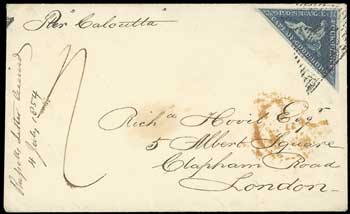 Per "Calcutta"
POSTAGE
Richd Hovil Esqre
5 Albert Square
Clapham Road
London
letter
4 July 1854